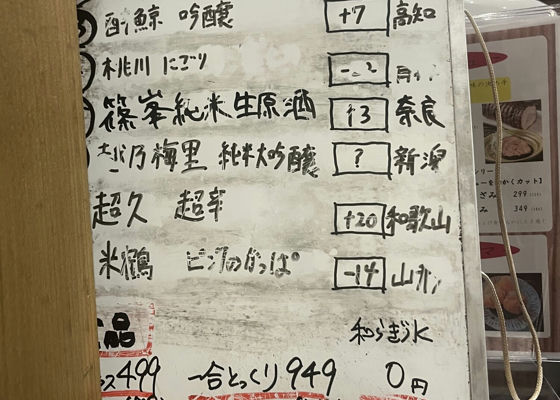 酔鯨 吟醸 +7 高知
桃川 にごり
篠峯 純米生原酒 +3 奈良
越乃梅里 純米大吟醸 ? 新潟
超久 超辛 +20 和歌山
米鶴 ピンクのかっぱ -14 山形
和らぎ水
品
499 一合とっくり 949 0円
299
349